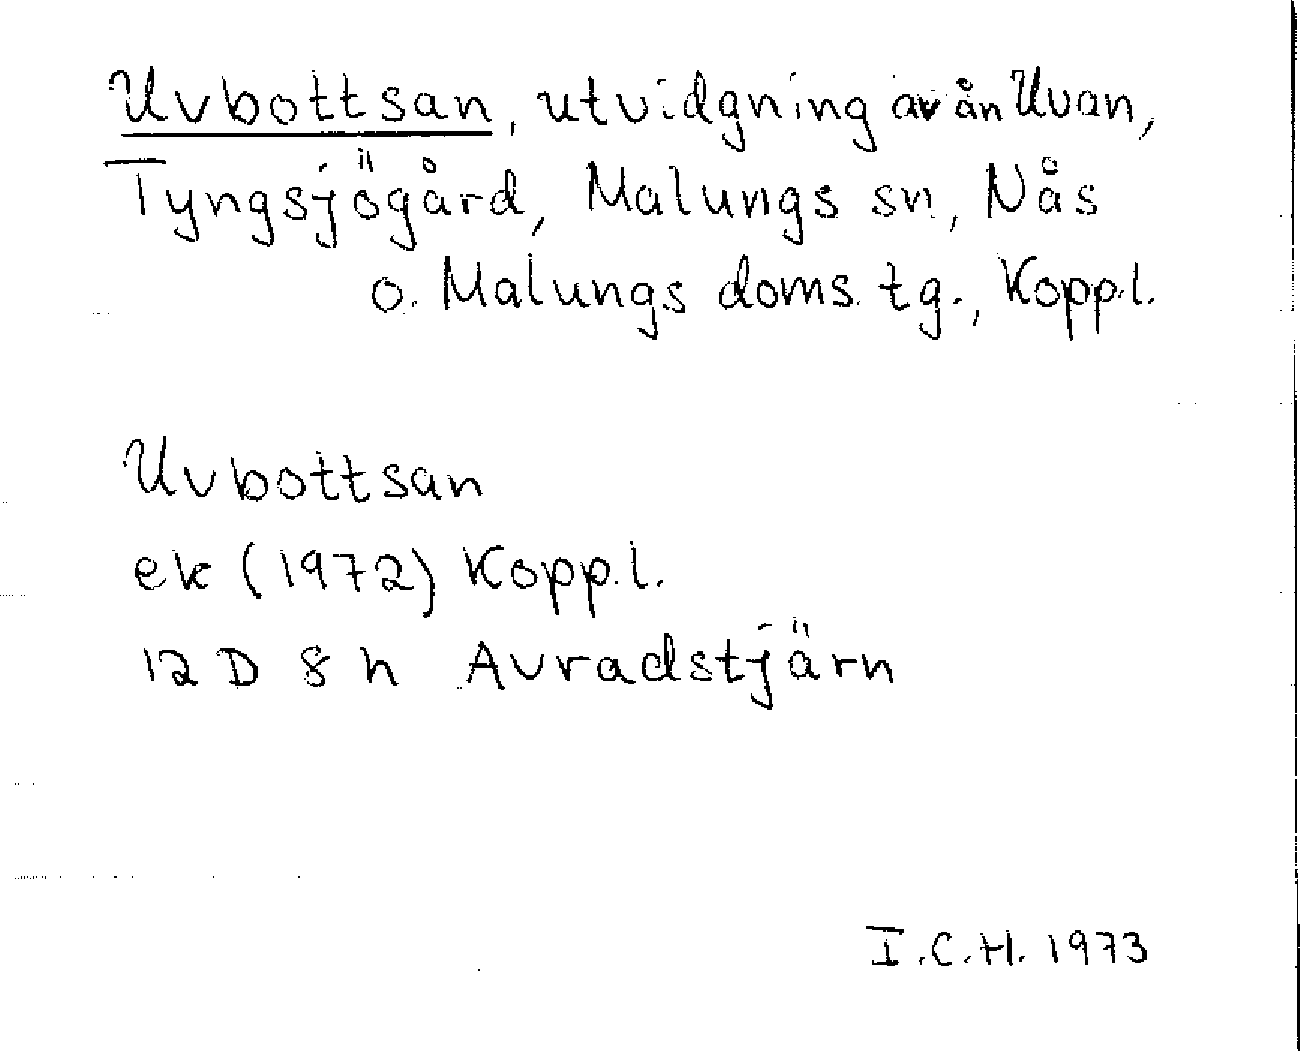 Uvbottsan, utvidgning av ån Uvan,
Tyngsjögård, Malungs sn, Nås
o. Malungs doms. tg., Kopp.l.
Uvbottsan
ek (1972) Kopp.l.
12 D 8 h Avradstjärn
I.C.H. 1973